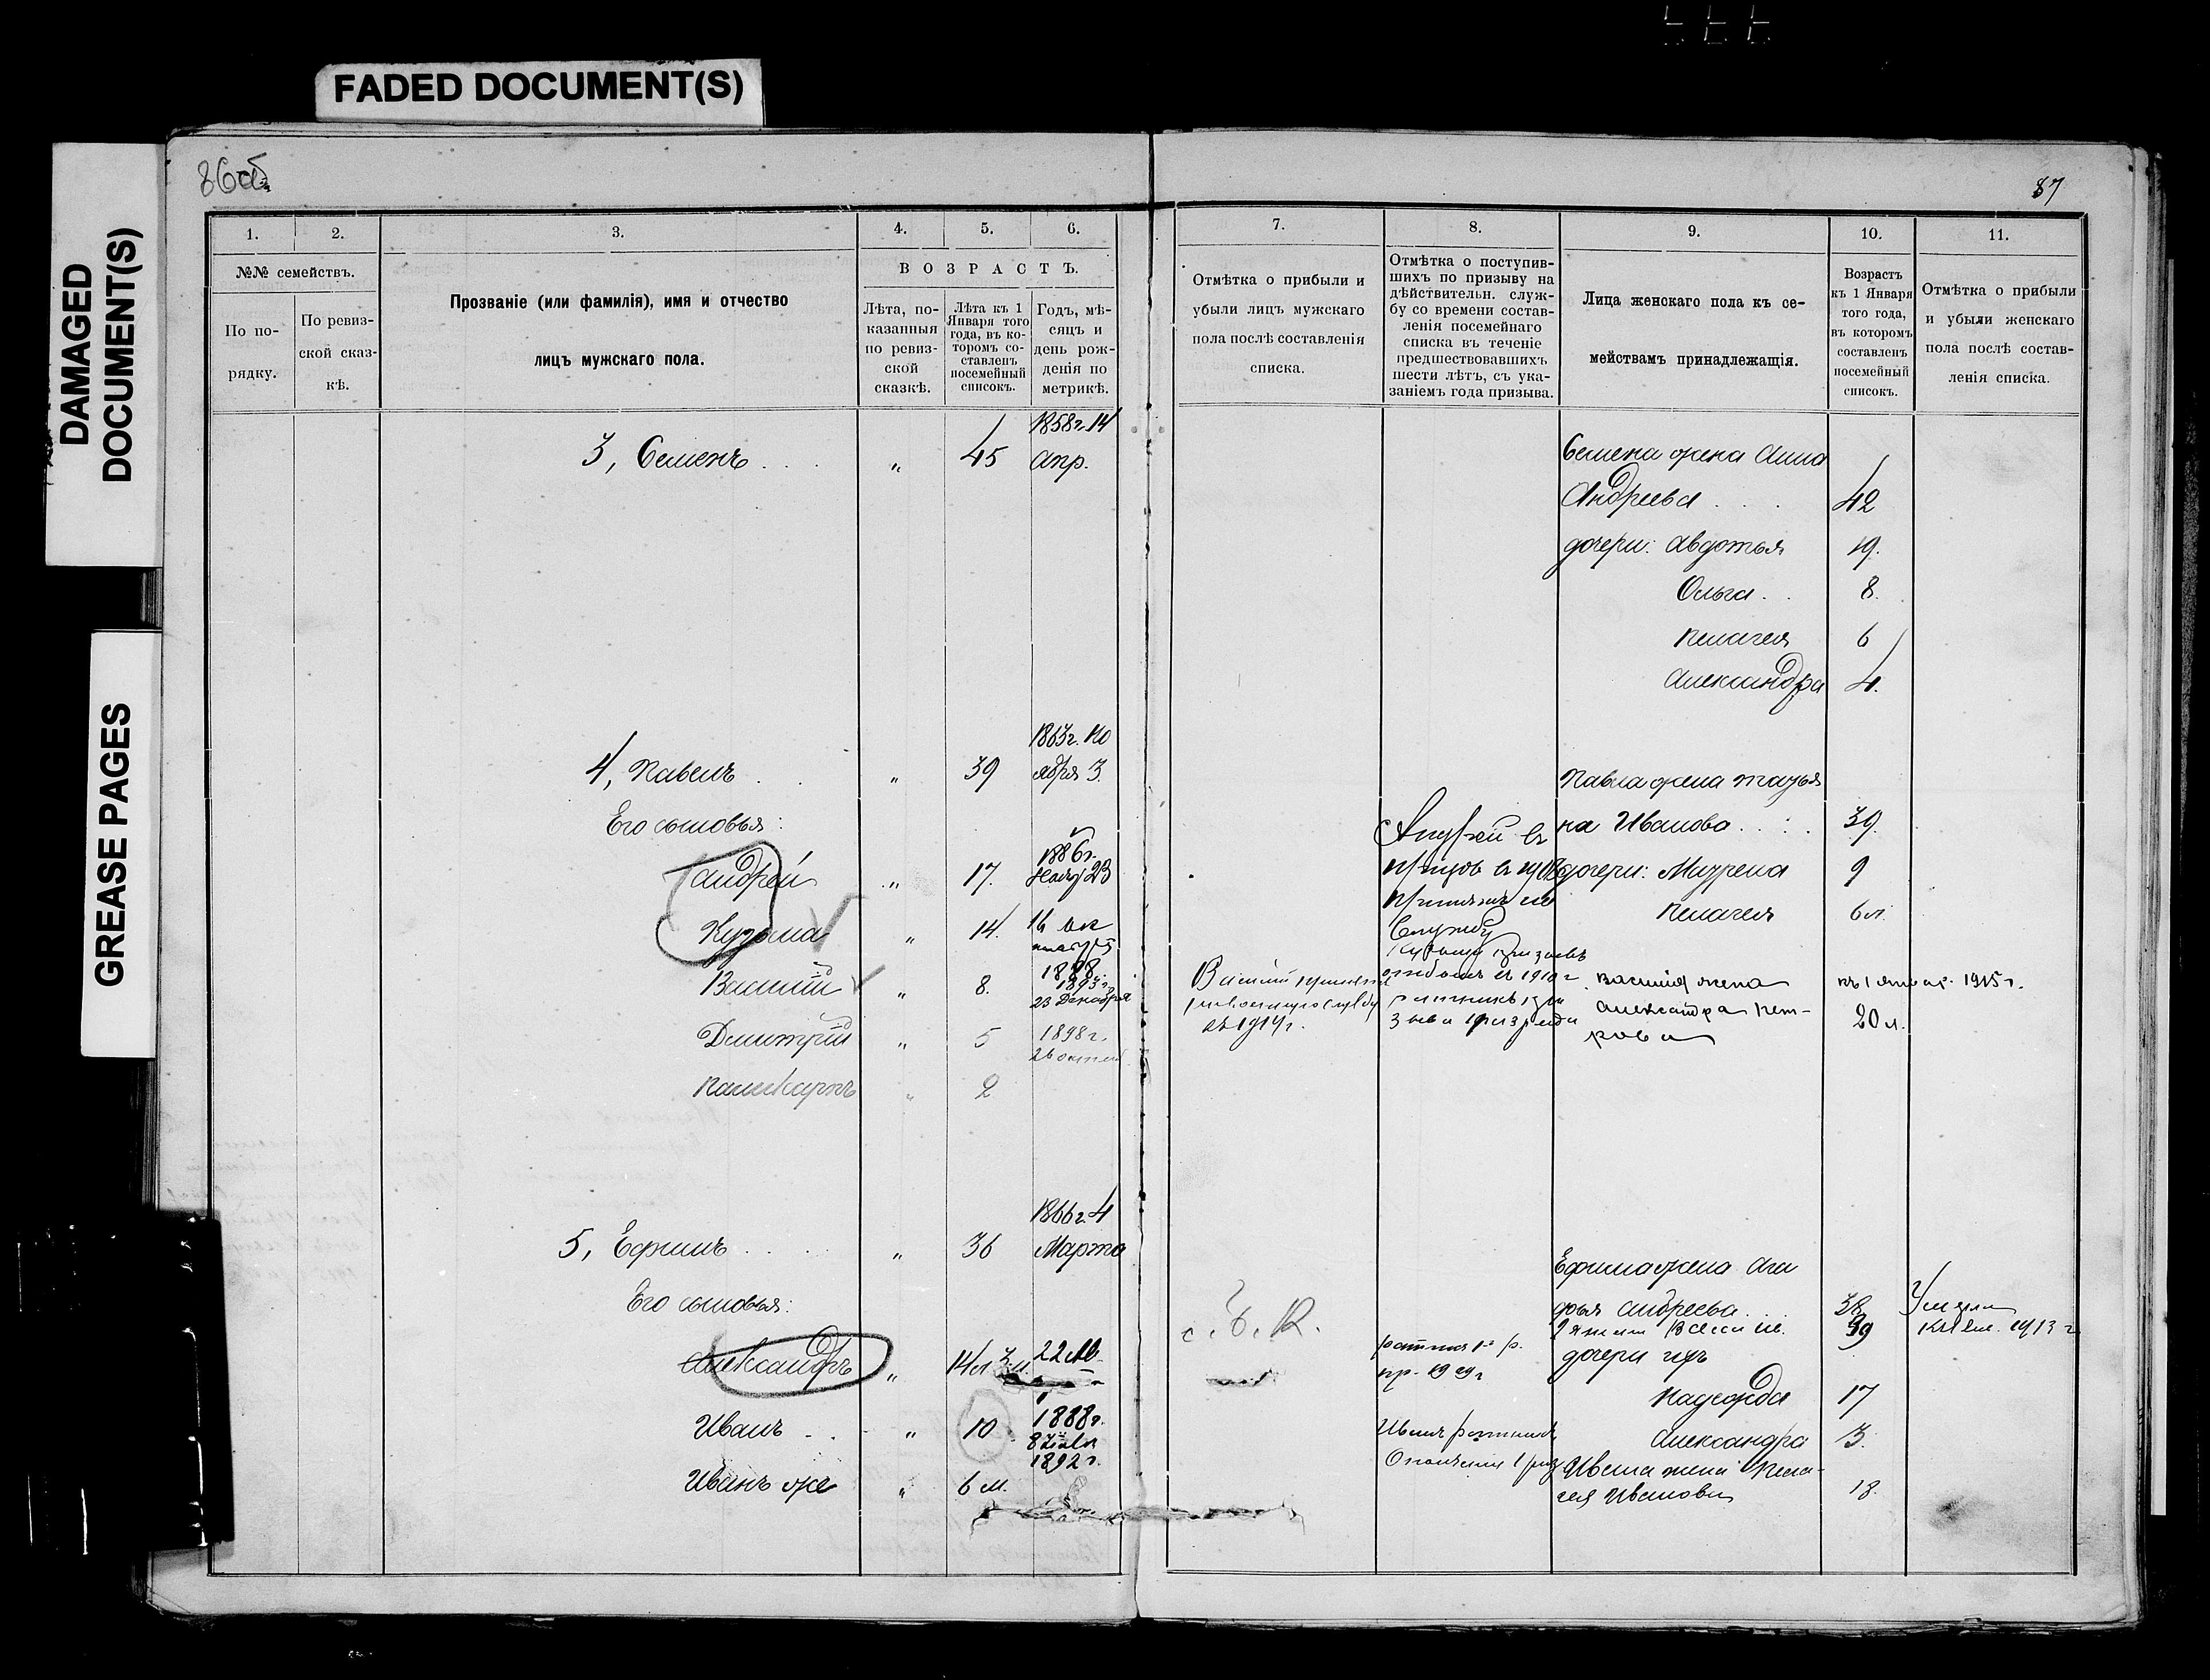 FADED DOCUMENT(S)
DAMAGED
DOCUMENT(S)
GREASE PAGES
86об
87
1.
2.
3.
4.
5.
6.
№№ семействъ.
По по-
рядку.
По ревиз-
ской сказ-
кѣ.
Прозваніе (или фамилія), имя и отчество
лицъ мужскаго пола.
ВОЗРАСТЪ.
Лѣта, по-
казанныя
по ревиз-
ской
сказкѣ.
Лѣта къ 1
Января того
года, въ ко-
торомъ со-
ставленъ
посемейный
списокъ.
Годъ, мѣ-
сяцъ и
день рож-
денія по
метрикѣ.
7.
8.
9.
10.
11.
Отмѣтка о прибыли и
убыли лицъ мужскаго
пола послѣ составленія
списка.
Отмѣтка о поступив-
шихъ по призыву на
дѣйствительн. служ-
бу со времени состав-
ленія посемейнаго
списка въ теченіе
предшествовавшихъ
шести лѣтъ, съ ука-
заніемъ года призыва.
Лица женскаго пола къ се-
мействамъ принадлежащія.
Возрастъ
къ 1 Января
того года,
въ которомъ
составленъ
посемейный
списокъ.
Отмѣтка о прибыли
и убыли женскаго
пола послѣ состав-
ленія списка.
1858г. 14
3, Семенъ . . . " 45 апр.
Семена жена Анна
Андреева . . . 42
дочери: Авдотья 19.
Ольга . . 8.
Пелагея 6
Александра 4.
1863г. Но
4, Павелъ . . " 39 ября 3.
Павла жена Татья
на Иванова . . . 39.
Его сыновья:
1886г.
Андрей " 17. 23
Андрей въ
дочери: Мазрена 9
Кузьма " 14. 16 ок
1888
Службу
Пелагея 6 л.
Василій " 8. 1893 г.
23 Декабря
Василій
въ 1914 г.
въ 1910 г.
Василія жена къ 1 январ. 1915 г.
Александра Пет-
рова 20 л.
Дмитрій " 5 1898 г.
26
" 2
1866г. 4
5, Ефимъ . . . " 36 Марта
Ефима жена Ага
фья Андреева . . . 38
39
1913 г.
Его сыновья:
Александръ " 14 л 3 м. 22
дочери ихъ
Надежда 17
Иванъ . . . " 10 1888г.
8
1892 г.
Иванъ ратникъ
Ополченія 1 раз
Александра 3.
Иванъ же " 6 м.
Ивана жена Пела-
гея Иванова 18.